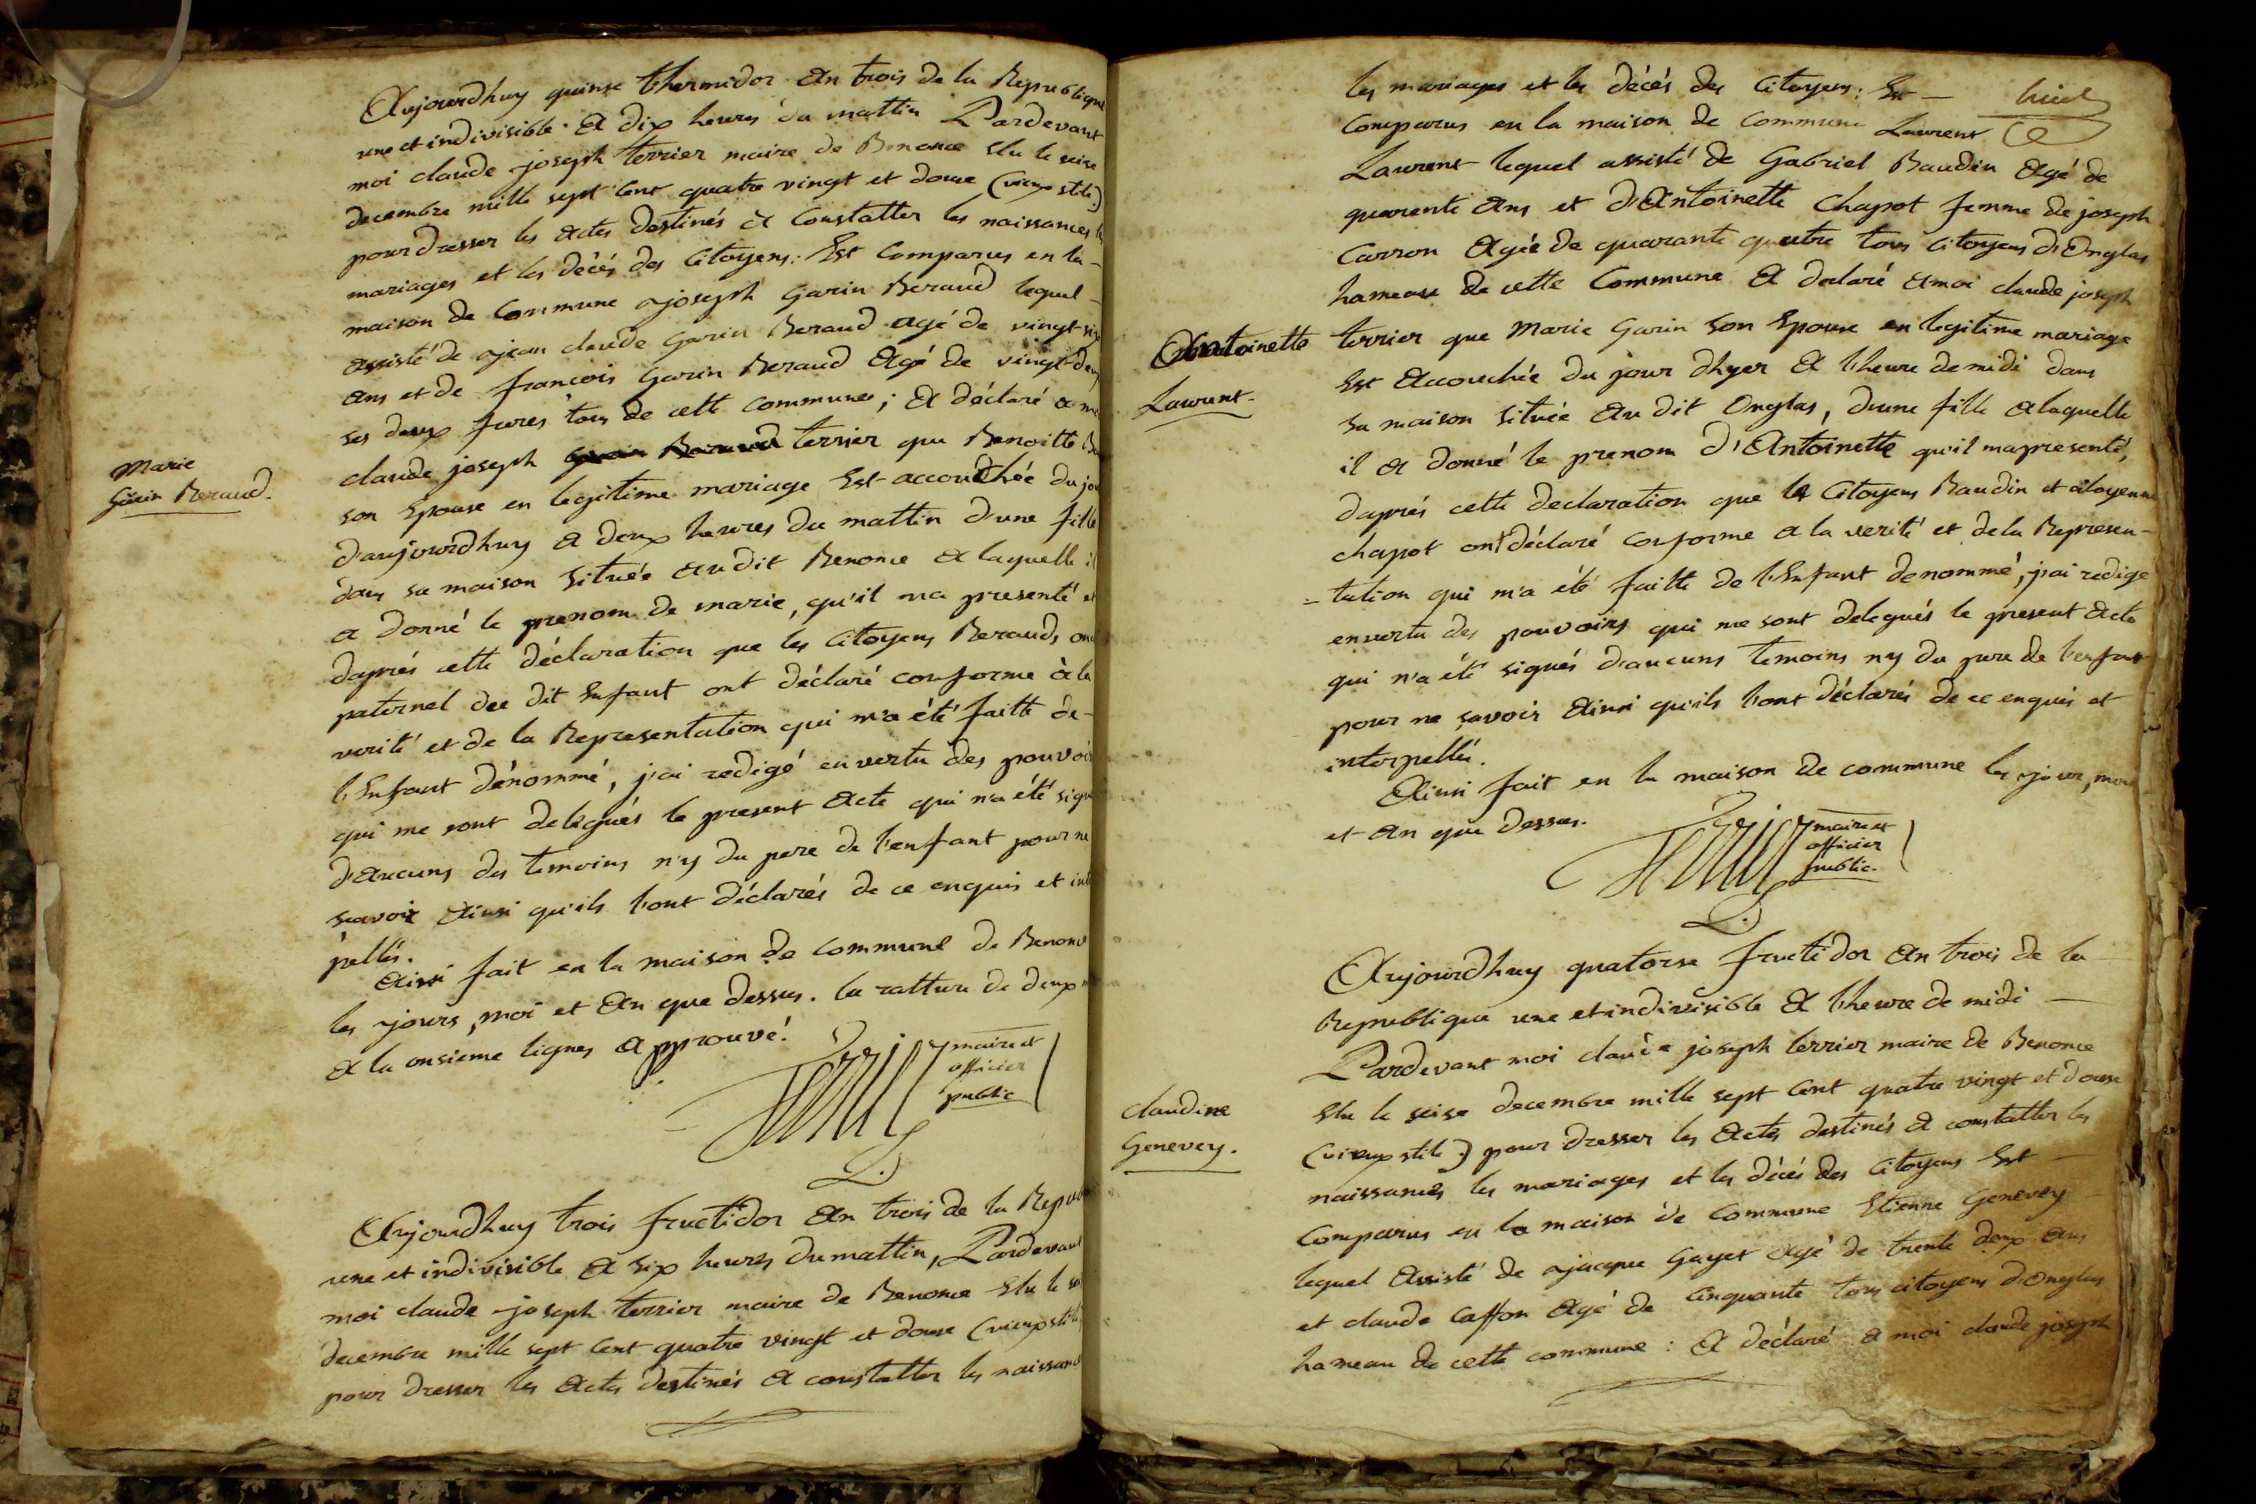 Aujourdhuy quinse thermidor An trois de la Republique
une et indivisible. A dix heures du mattin Pardevant
moi claude joseph terrier maire de Benonce Elu le seise
decembre mille sept Cent quatre vingt et douse (vieux stile)
pour dresser les Actes destinés A Constatter les naissances les
mariages et les décés des Citoyens: Est Comparus en la-
maison de Commune joseph Garin Beraud lequel-
assisté de jean claude Garin Beraud agé de vingt six
Ans et de francois Garin Beraud Agé de vingt deux
ses deux freres tous de cette commune; A déclaré a moi
Marie
Garin Beraud.
claude joseph terrier que Benoitte
son Epouse en legitime mariage Est accouchée du jour
d'aujourdhuy A deux heures du mattin d'une fille
dans sa maison Située Audit Benonce A laquelle il
a donné le prenom de marie, qu'il ma presenté et
daprés cette déclaration que les Citoyens Berauds
paternel du dit Enfant ont déclaré conforme à la
verité et de la Representation qui m'a été faitte de-
l'Enfant dénommé, j'ai redigé en vertu des pouvoirs
qui me sont delegués le present Acte qui n'a été signé
d'Aucuns des temoins n'y du pere de l'enfant pour ne
scavoir Ainsi qu'ils l'ont déclarés de ce enquis et inter
pellés.
Ainsi fait en la maison de commune de Benonce
les jours, moi et An que dessus. la ratture de deux
A la onsieme lignes Approuvé.
Terrier maire et
officier
public
Aujourdhuy trois fructidor An trois de la Republique
une et indivisible A Six heures du mattin, Pardevant
moi claude joseph terrier maire de Benonce Elu le seise
decembre mille sept Cent quatre vingt et douse (vieux stile)
pour dresser les Actes destinés A constatter les naissances
les mariages et les décés des Citoyens: Est —
Comparus en la maison de Commune Laurent
Laurent lequel assisté de Gabriel Baudin Agé de
quarente Ans et d'Antoinette Chapot femme de joseph
Carron Agée de quarante quatre tous Citoyens d'Onglas
hameau de cette Commune A declaré A moi claude joseph
Antoinette
Laurent.
terrier que Marie Garin Son Epouse en legitime mariage
Est Accouchée du jour dhyer A l'heure de midi dans
sa maison située Au dit Onglas, d'une fille a laquelle
il A donné le prenom d'Antoinette qu'il ma presenté,
daprés cette declaration que les Citoyens Baudin et citoyenne
chapot ont déclaré conforme a la verité et de la Represen-
-tation qui m'a été faitte de l'Enfant denommé, j'ai redigé
en vertu des pouvoirs qui me sont delegués le present Acte
qui n'a été signés d'aucuns temoins n'y du pere de l'enfant
pour ne scavoir Ainsi qu'ils l'ont déclarés de ce enquis et
interpellés.
Ainsi fait en la maison de commune les jour, moi
et An que dessus.
Terrier maire et
officier
public.
Aujourdhuy quatorse fructidor An trois de la —
Republique une et indivisible A l'heure de midi —
Pardevant moi claude joseph terrier maire de Benonce
Elu le seise decembre mille sept Cent quatre vingt et douse
Claudine
Genevey.
(vieux stile) pour dresser les Actes destinés A constatter les
naissances les mariages et les décés des Citoyens Est —
Comparus en la maison de Commune Etienne Genevey
lequel Assisté de jacque Gayet Agé de trente deux Ans
et claude Caffon Agé de Cinquante tous citoyens d'Onglas
hameau de cette commune: A déclaré A moi claude joseph